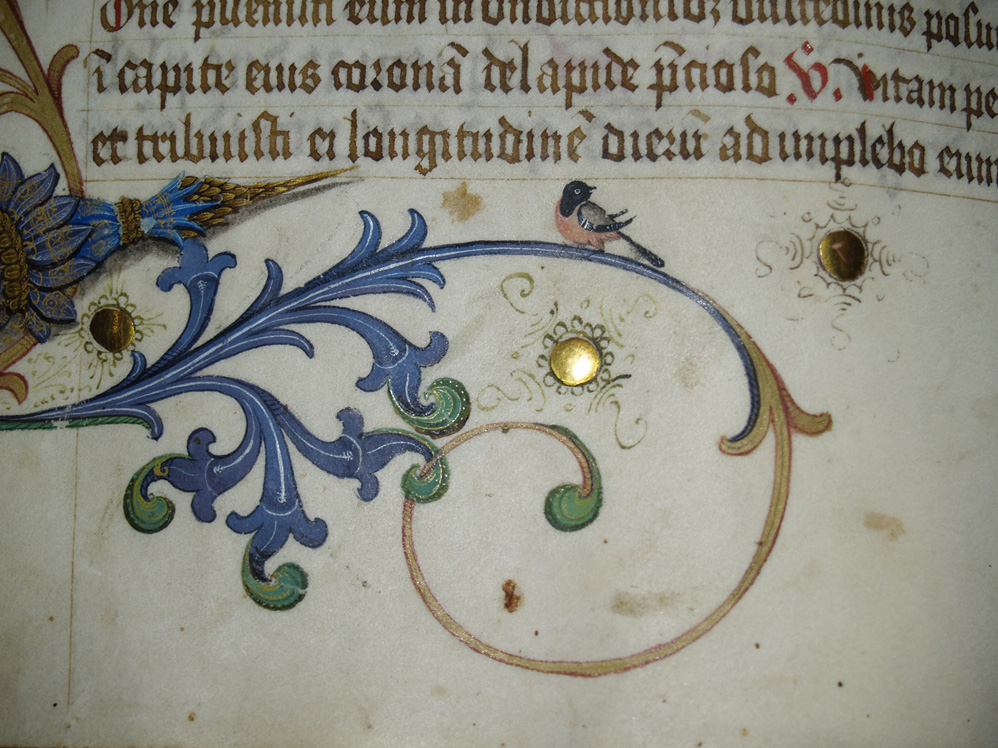 One p̄uenisti eum in bndictionibꝫ dulcedinis posu
ī capite eius coronā de lapide p̄cioso V. Vitam pe
et tribuisti ei longitudinē dierū ad implebo eum